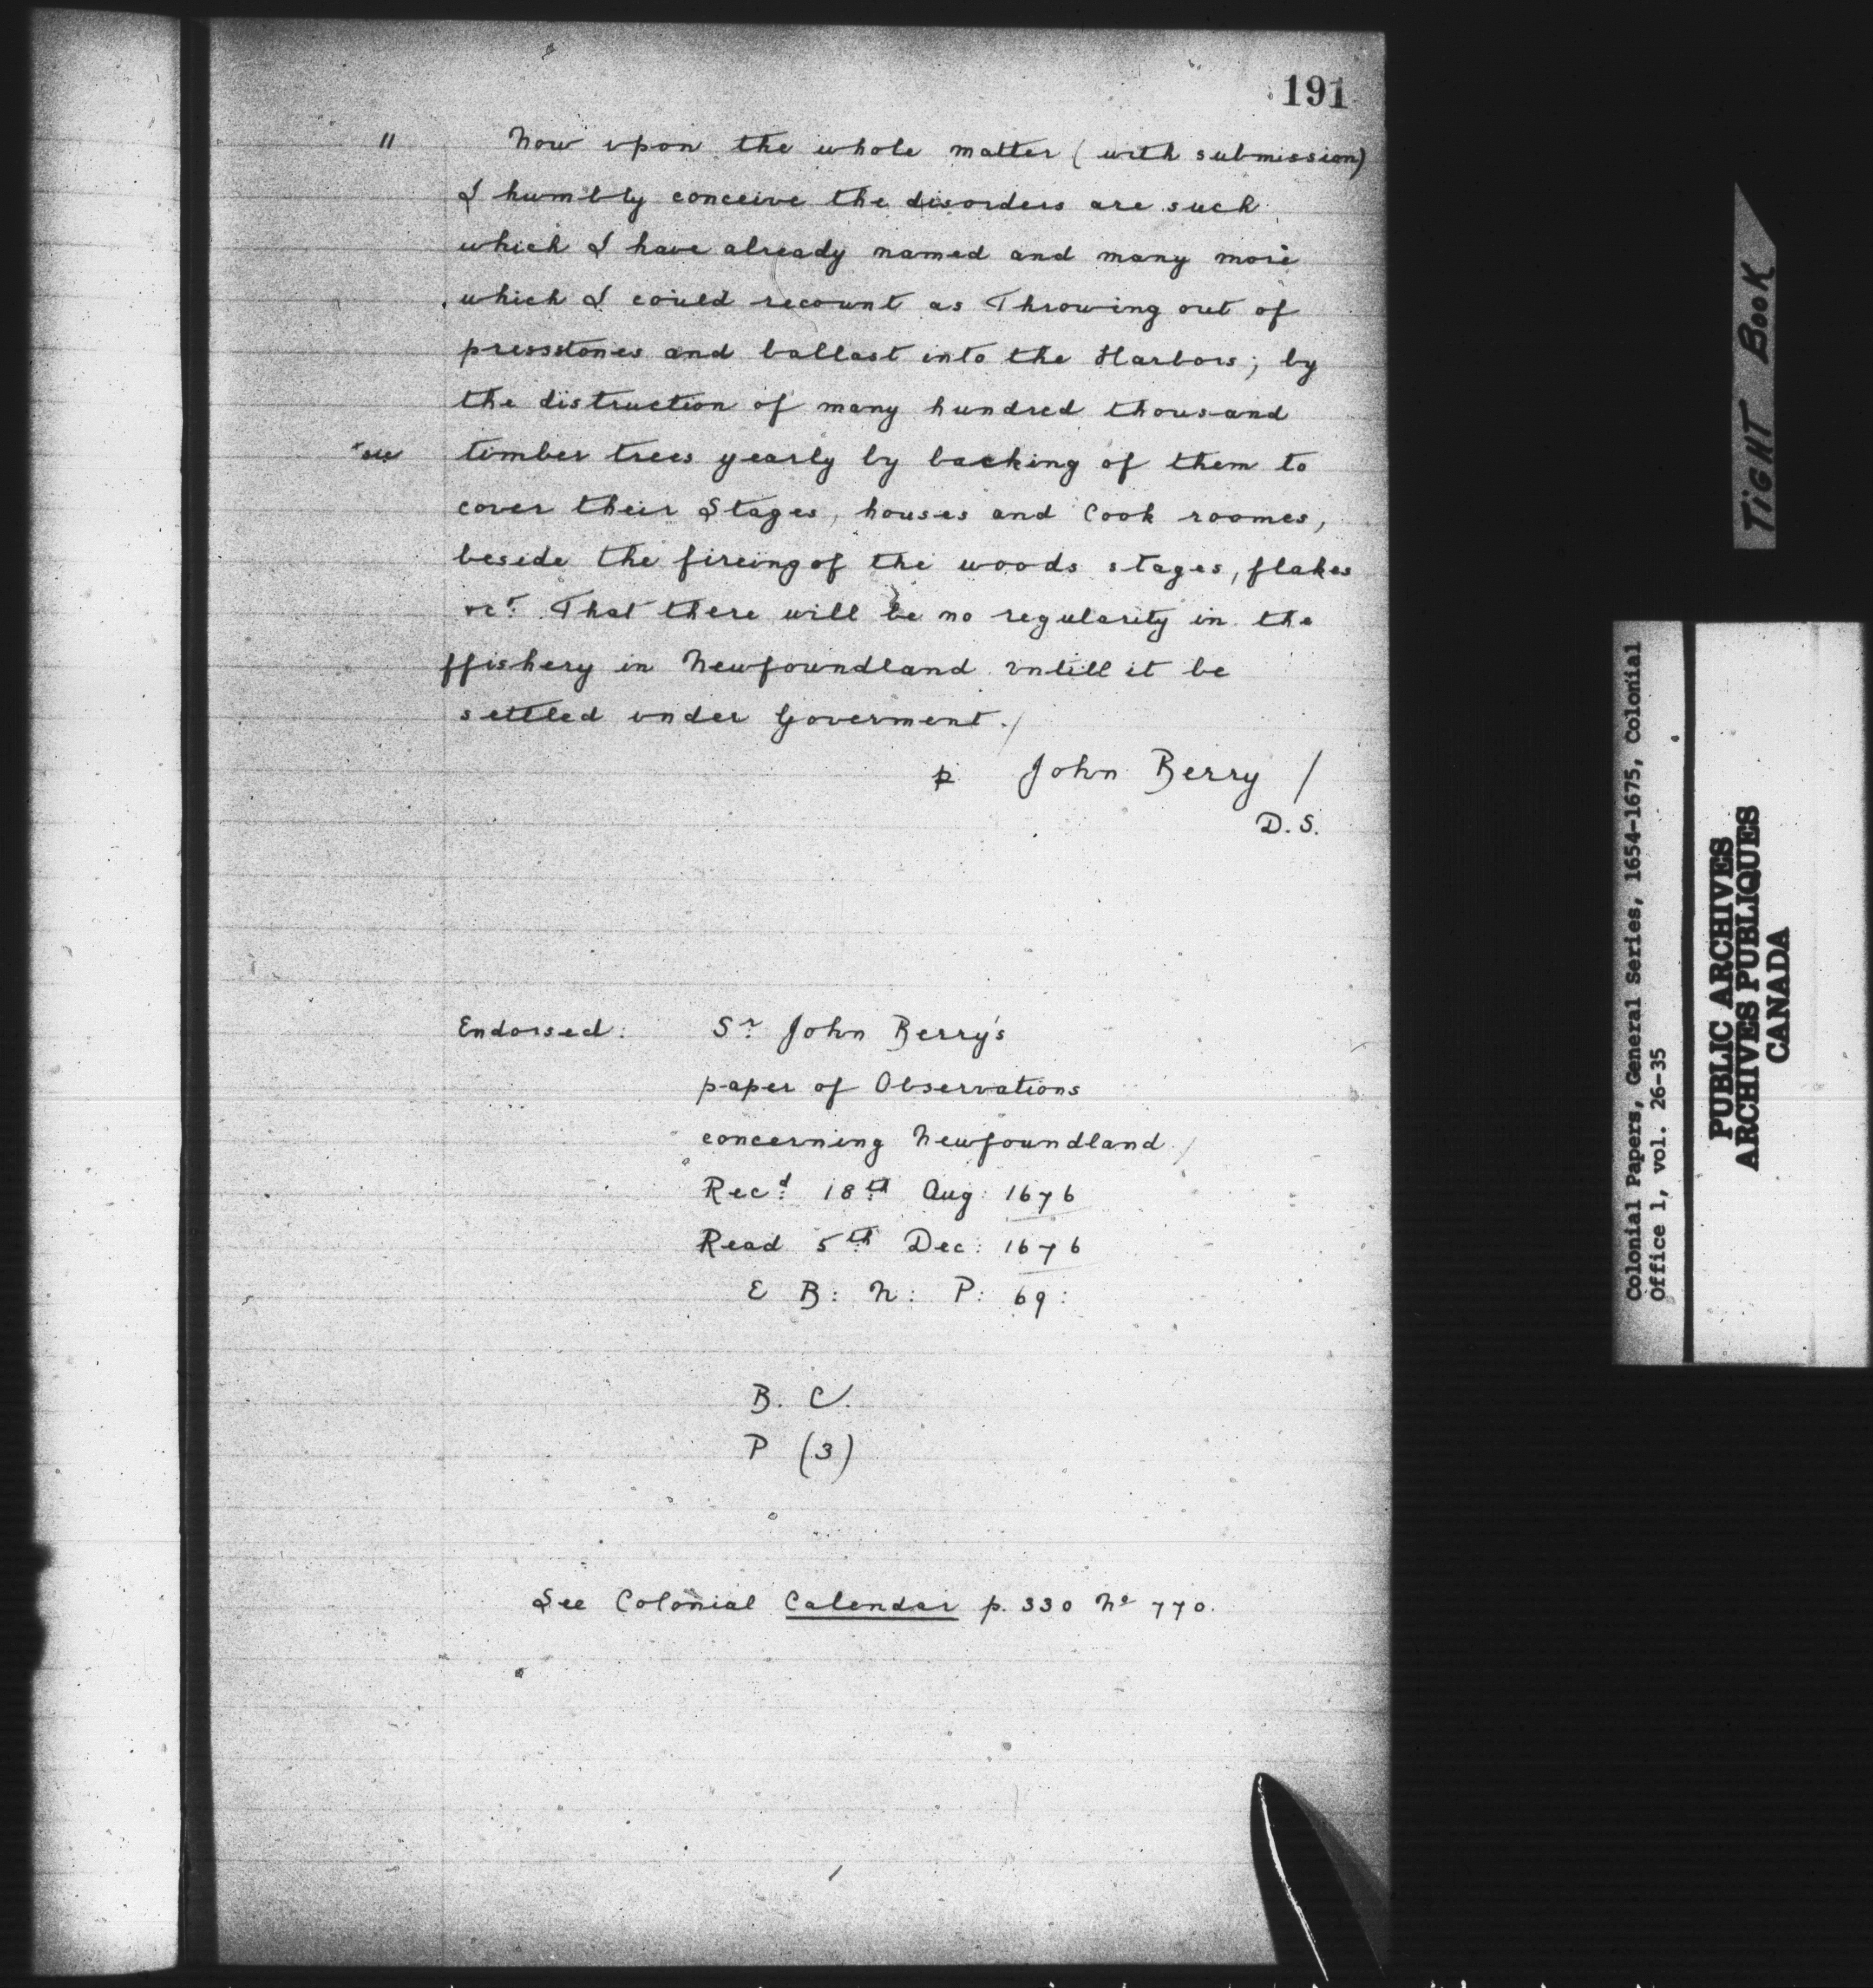 191
" Now vpon the whole matter (with submission)
I humbly conceive the disorders are such
which I have already named and many more
which I could recount as Throwing out of
pressstones and ballast into the Harbors; by
the distruction of many hundred thousand
timber trees yearly by backing of them to
cover their Stages, houses and Cook roomes,
beside the fireing of the woods stages, flakes
&c. That there will be no regularity in the
ffishery in Newfoundland vntill it be
settled vnder Goverment./
p John Berry /
D. S.
Endorsed: Sr John Berry's
paper of Observations
concerning Newfoundland /
Recd 18th Aug: 1676
Read 5th Dec: 1676
E B: N: P: 69:
B. C.
P (3)
See Colonial Calendar p. 330 No 770.
TIGHT BOOK
Colonial Papers, General Series, 1654-1675, Colonial
Office 1, vol. 26-35
PUBLIC ARCHIVES
ARCHIVES PUBLIQUES
CANADA